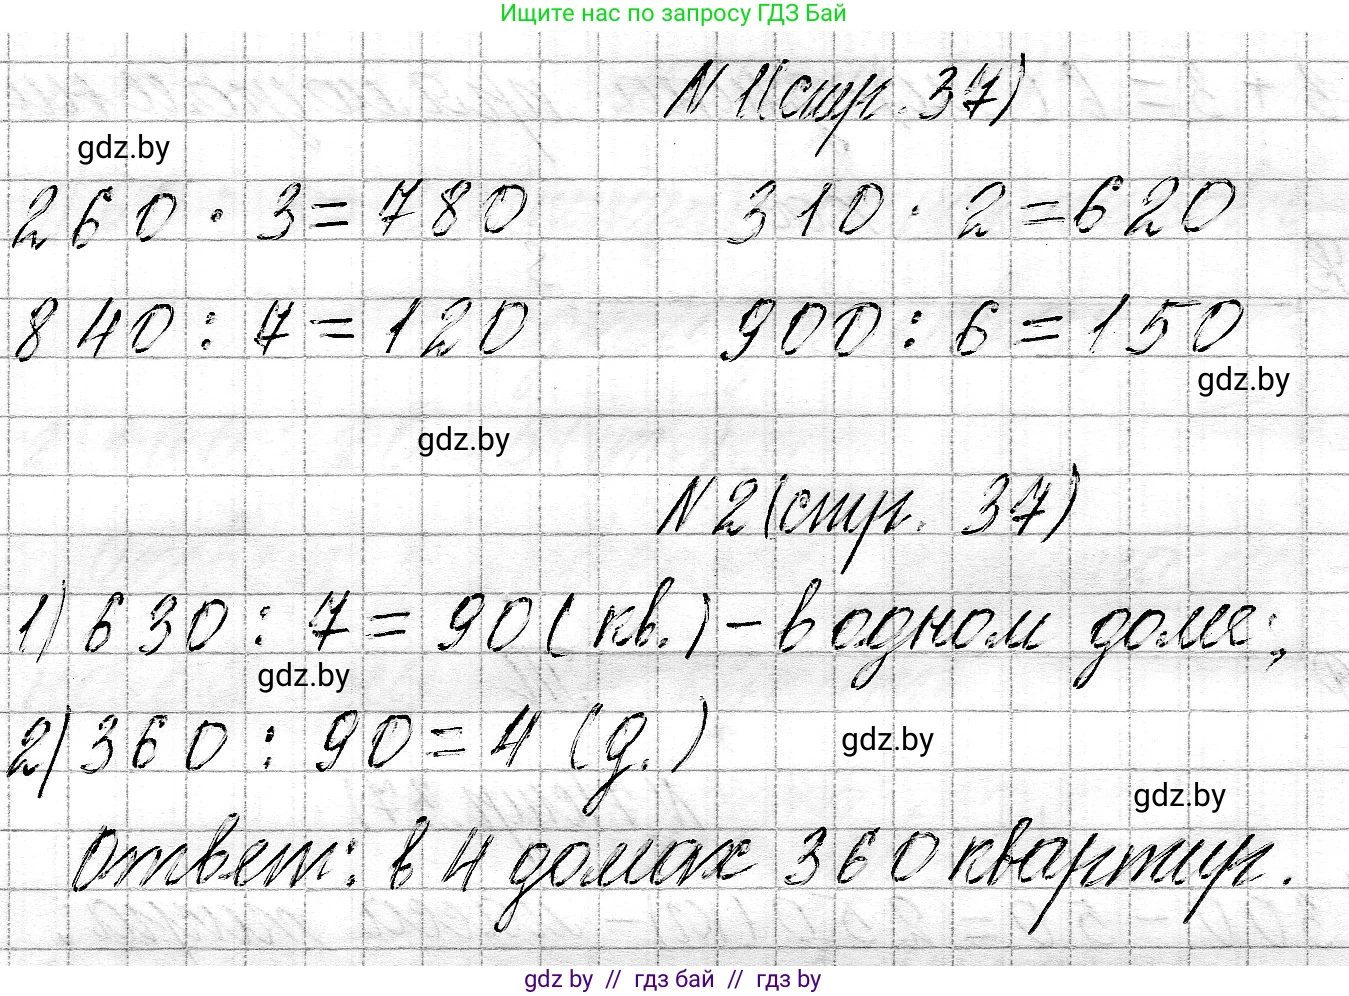 Ищите нас по запросу ГДЗ Бай
N 1(стр. 37)
gdz.by
260 · 3 = 780 310 · 2 = 620
840 : 7 = 120 900 : 6 = 150
gdz.by
gdz.by
N 2(стр. 37)
1) 630 : 7 = 90 (кв.) – в одном доме;
gdz.by
2) 360 : 90 = 4 (д.)
gdz.by
gdz.by
Ответ: в 4 домах 360 квартир.
gdz by // гдз бай // гдз by